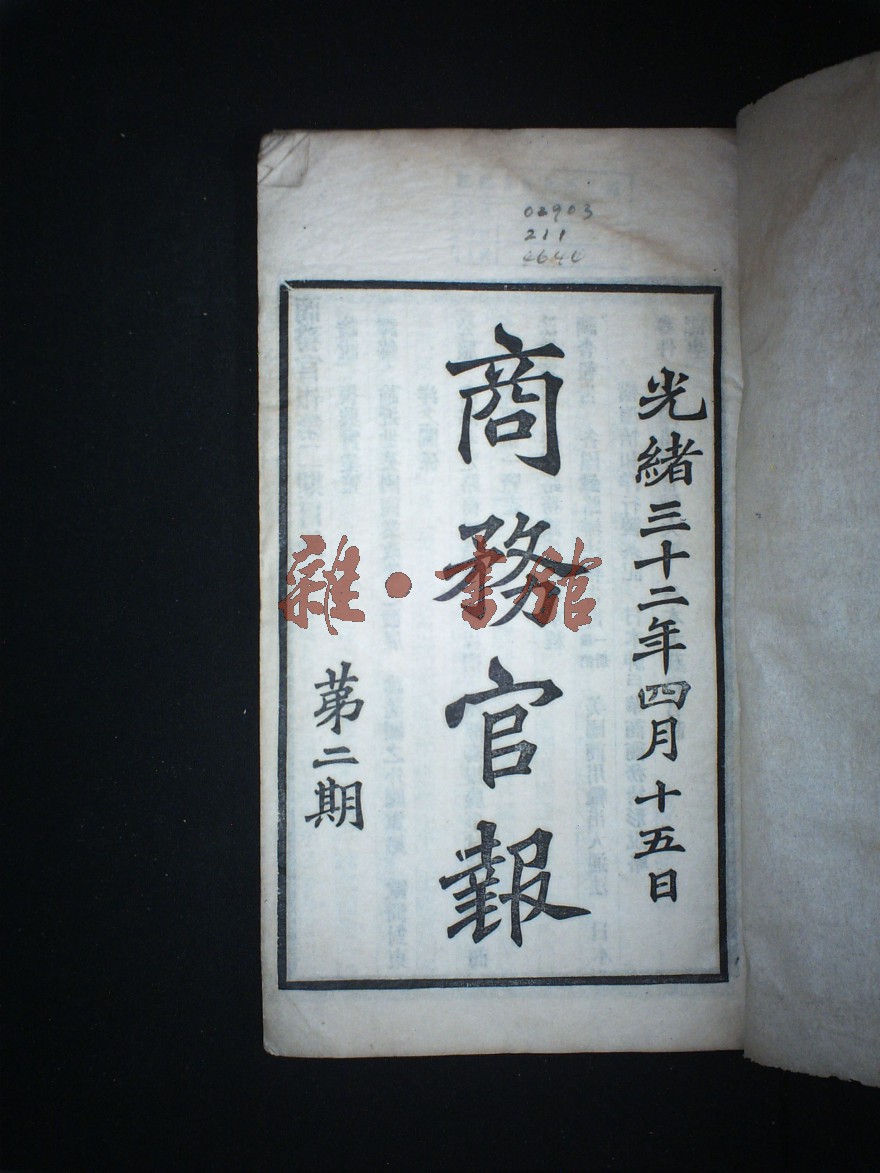 02903
211
4646
光緒三十二年四月十五日
商務官報
第二期
雜·書館